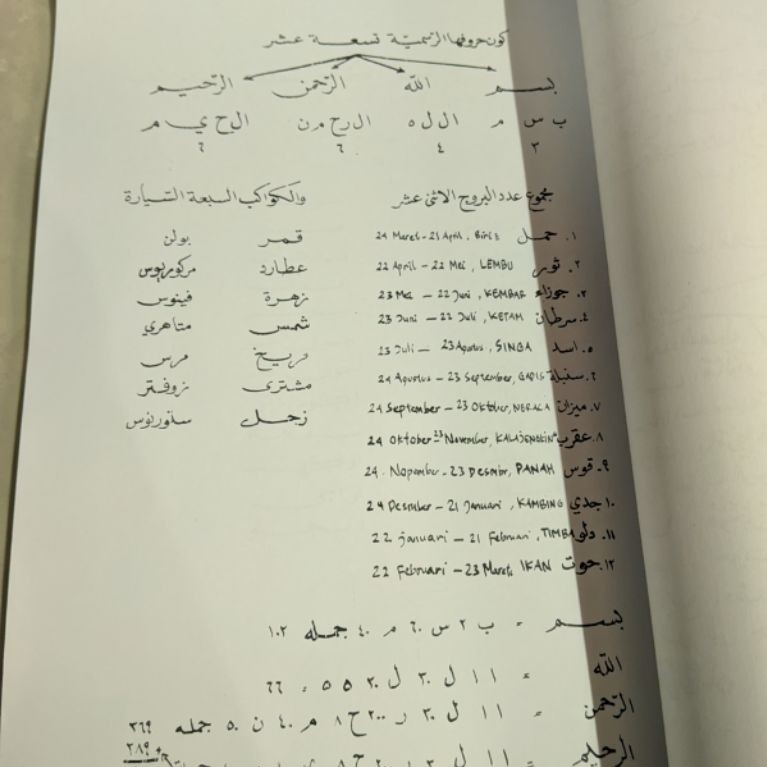 كون حروفها الرسمية تسعة عشر
بسم الله الرحمن الرحيم
ب س م ا ل ل ه ا ل ر ح م ن ا ل ر ح ي م
٣ ٤ ٦ ٦
مجموع عدد البروج الاثنى عشر
١. حمل 24 Maret - 21 April,
٢. ثور 22 April - 22 Mei, LEMBU
٣. جوزاء 23 Mei - 22 Juni, KEMBAR
٤. سرطان 23 Juni - 22 Juli, KETAM
٥. اسد 23 Juli - 23 Agustus, SINGA
٦. سنبلة 24 Agustus - 23 September, GADIS
٧. ميزان 24 September - 23 Oktober, NERACA
٨. عقرب 24 Oktober - 23 November,
٩. قوس 24. Nopember - 23 Desmbr, PANAH
١٠. جدي 24 Desember - 21 Januari, KAMBING
١١. دلو 22 januari - 21 Februari, TIMBA
١٢. حوت 22 Februari - 23 Maret, IKAN
والكواكب السبعة السيارة
قمر بولن
عطارد مركوريوس
زهرة فينوس
شمس متاهري
مريخ مرس
مشترى
زحل ستورنوس
بسم = ب ٢ س ٦٠ م ٤٠ جمله ١٠٢
الله = ا ١ ل ٣٠ ل ٣٠ ه ٥ = ٦٦
الرحمن = ا ١ ل ٣٠ ر ٢٠٠ ح ٨ م ٤٠ ن ٥٠ جمله ٣٢٩
الرحيم = ا ١ ل ٣٠ ر ٢٠٠ ح ٨ ٢٨٩